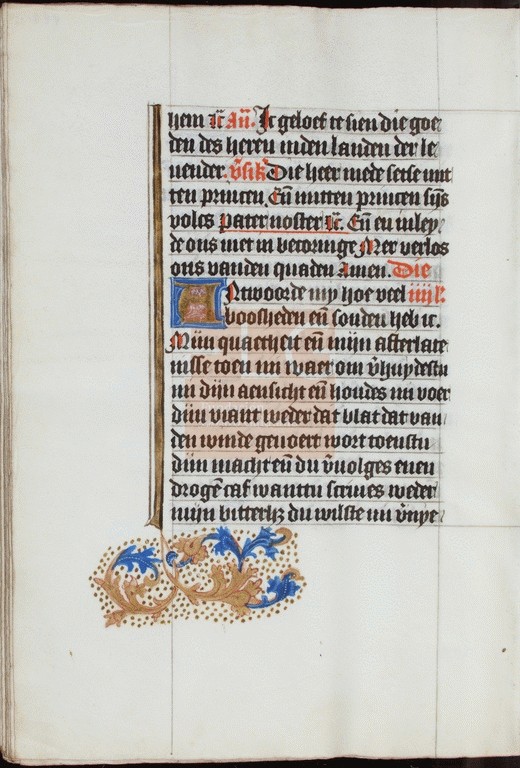 hem ⁊c̄ Añ. Ic geloef te sien die goe
den des heren inden landen der le
uender. v̄sik̄ Die heer mede setse mit
ten princen Eñ mitten princen sijs
volcs pater noster ⁊c̄. Eñ en inley
de ons niet in becoringe Mer verlos
ons vanden quaden Amen. Die
Antwoorde my hoe veel iiii l̄.
boosheden eñ sonden heb ic.
Mijn quaetheit eñ mijn afterlate
nisse toen mi waer om v̄huydestu
mi dijn aensicht eñ houdes mi voer
dijn viant weder dat blat dat van
den winde geuoert wort toenstu
dijn macht eñ du v̄uolges enen
drogē caf wanttu scriues weder
mijn bitterh₃ du wilste mi v̄nye